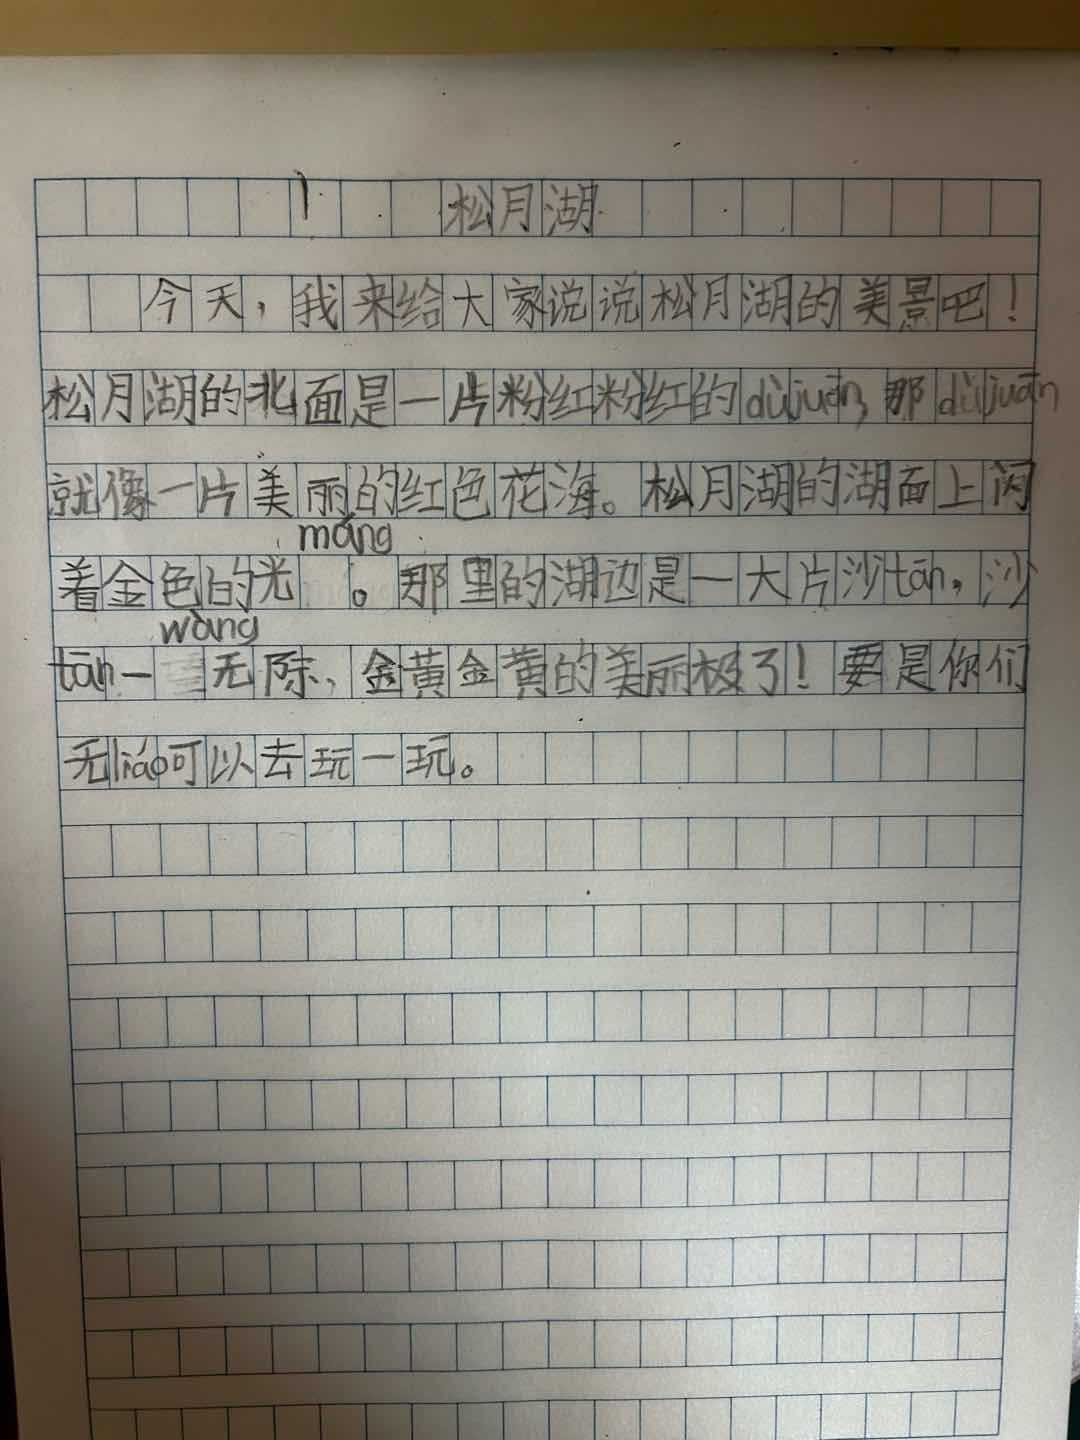 松月湖
今天，我来给大家说说松月湖的美景吧！
松月湖的北面是一片粉红粉红的dùjuān，那dùjuān
就像一片美丽的红色花海。松月湖的湖面上闪
máng
着金色的光 。那里的湖边是一大片沙tān，沙
wàng
tān一 无际，金黄金黄的美丽极了！要是你们
无liáo可以去玩一玩。